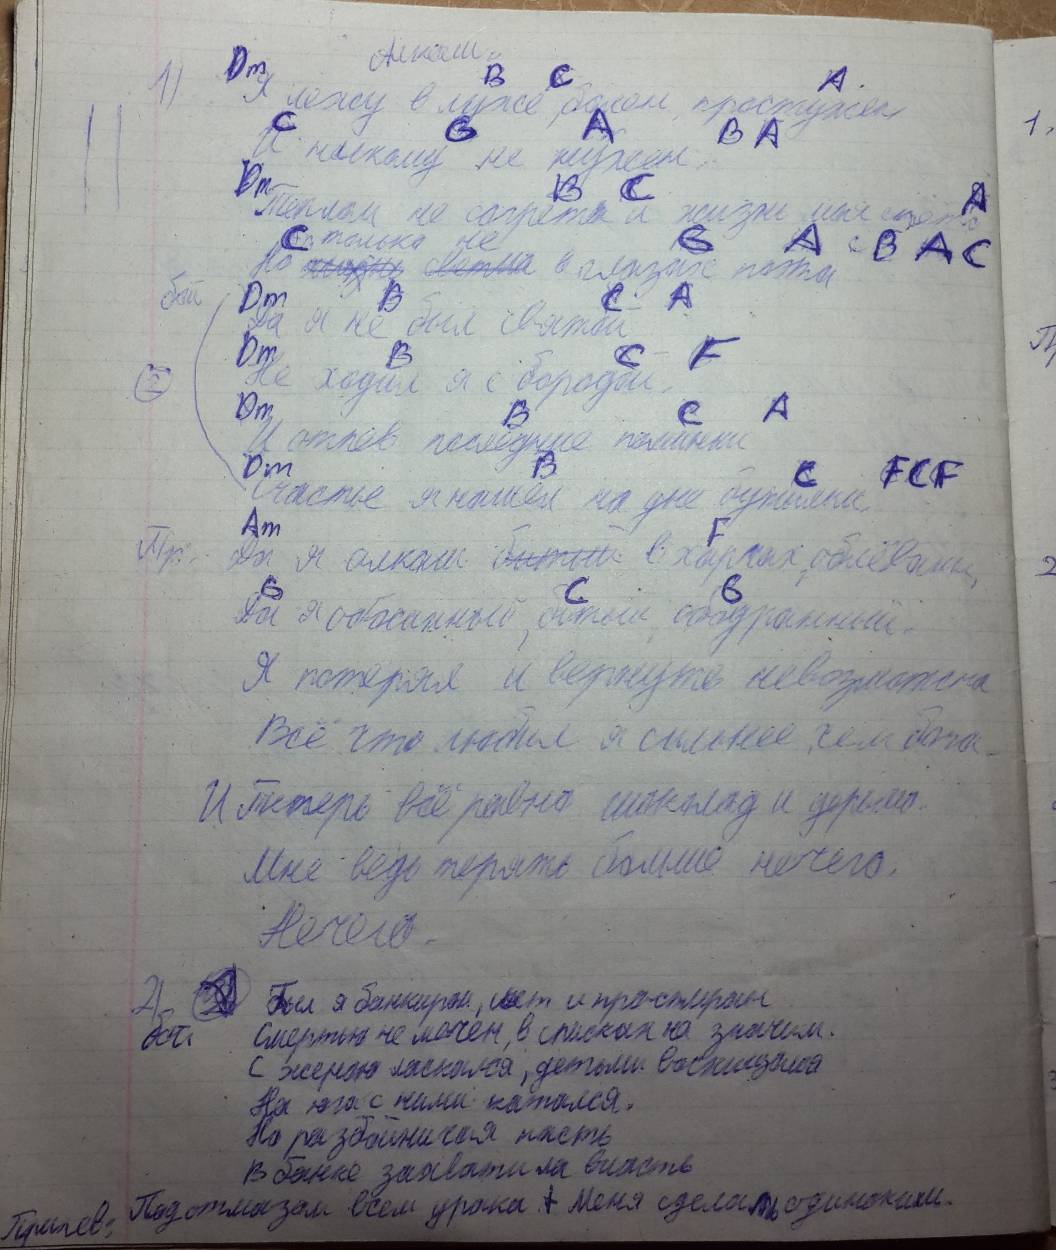 Алкаш.
1) Dm B C A
Я лежу в луже, болен, простужен
C G A B A
И никому не нужен.
Dm B C A
Теплом не согрета и жизнь моя
только не
C G A B A C
Но в глазах
бой Dm B C A
Да я не был святой
Dm B C F
Не ходил я с бородой.
Dm B C A
И отпев последние поминки
Dm B C F C F
Счастье я нашел на дне бутылки.
Am F
Пр: Да я алкаш битый в харчах, облёванный,
G C G
Да я обоссанный, битый, ободранный.
Я потерял и вернуть невозможна
Всё что любил я сильнее, чем бога.
И Теперь всё равно шоколад и дерьмо.
Мне ведь терять больше нечего.
Нечего.
2) Был я банкиром, и
бой Смертью не мечен, в списках не значим.
С женою ласкался, детьми восхищался
На юга с ними катался.
Но разбойничья пасть
В банке захватила власть
Припев: Подотмазом всем урока + Меня сделать одиноким.
1.
2